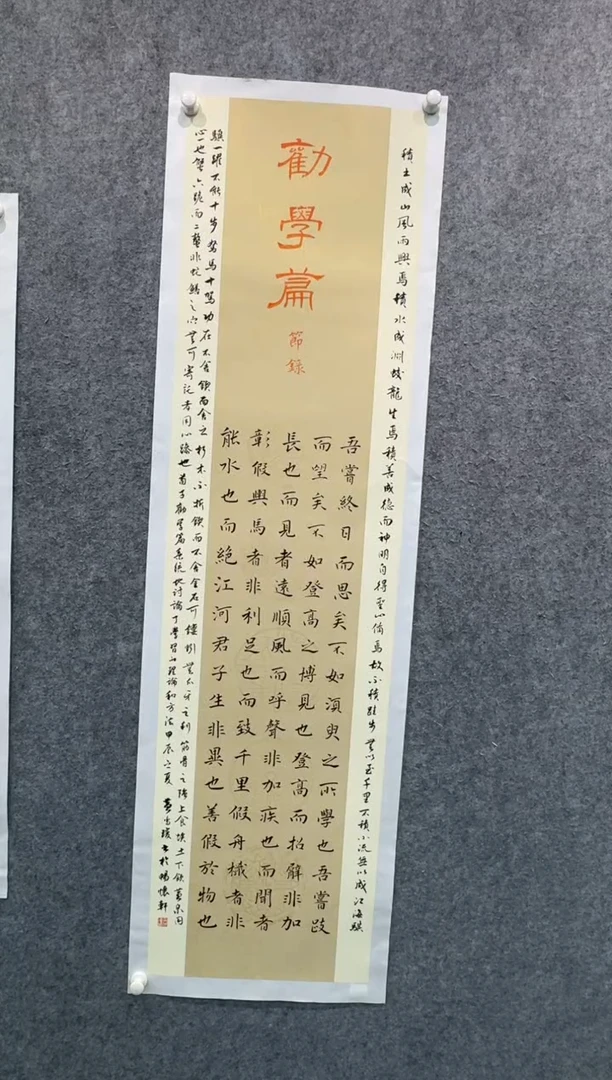 勸學篇
節錄
吾嘗終日而思矣不如湏臾之所學也吾嘗跂
而望矣不如登高之博見也登高而招臂非加
長也而見者遠順風而呼聲非加疾也而聞者
彰假輿馬者非利足也而致千里假舟檝者非
能水也而絕江河君子生非異也善假於物也
積土成山風雨興焉積水成淵蛟龍生焉積善成德而神明自得聖心備焉故不積跬步無以至千里不積小流無以成江海騏
驥一躍不能十步駑馬十駕功在不舍鍥而舍之朽木不折鍥而不舍金石可鏤螾無爪牙之利筋骨之強上食埃土下飲黃泉用
心一也蟹六跪而二螯非蛇鱔之穴無可寄託者用心躁也荀子勸學篇系統地討論了學習的理論和方法甲辰之夏黃書於暢懷軒